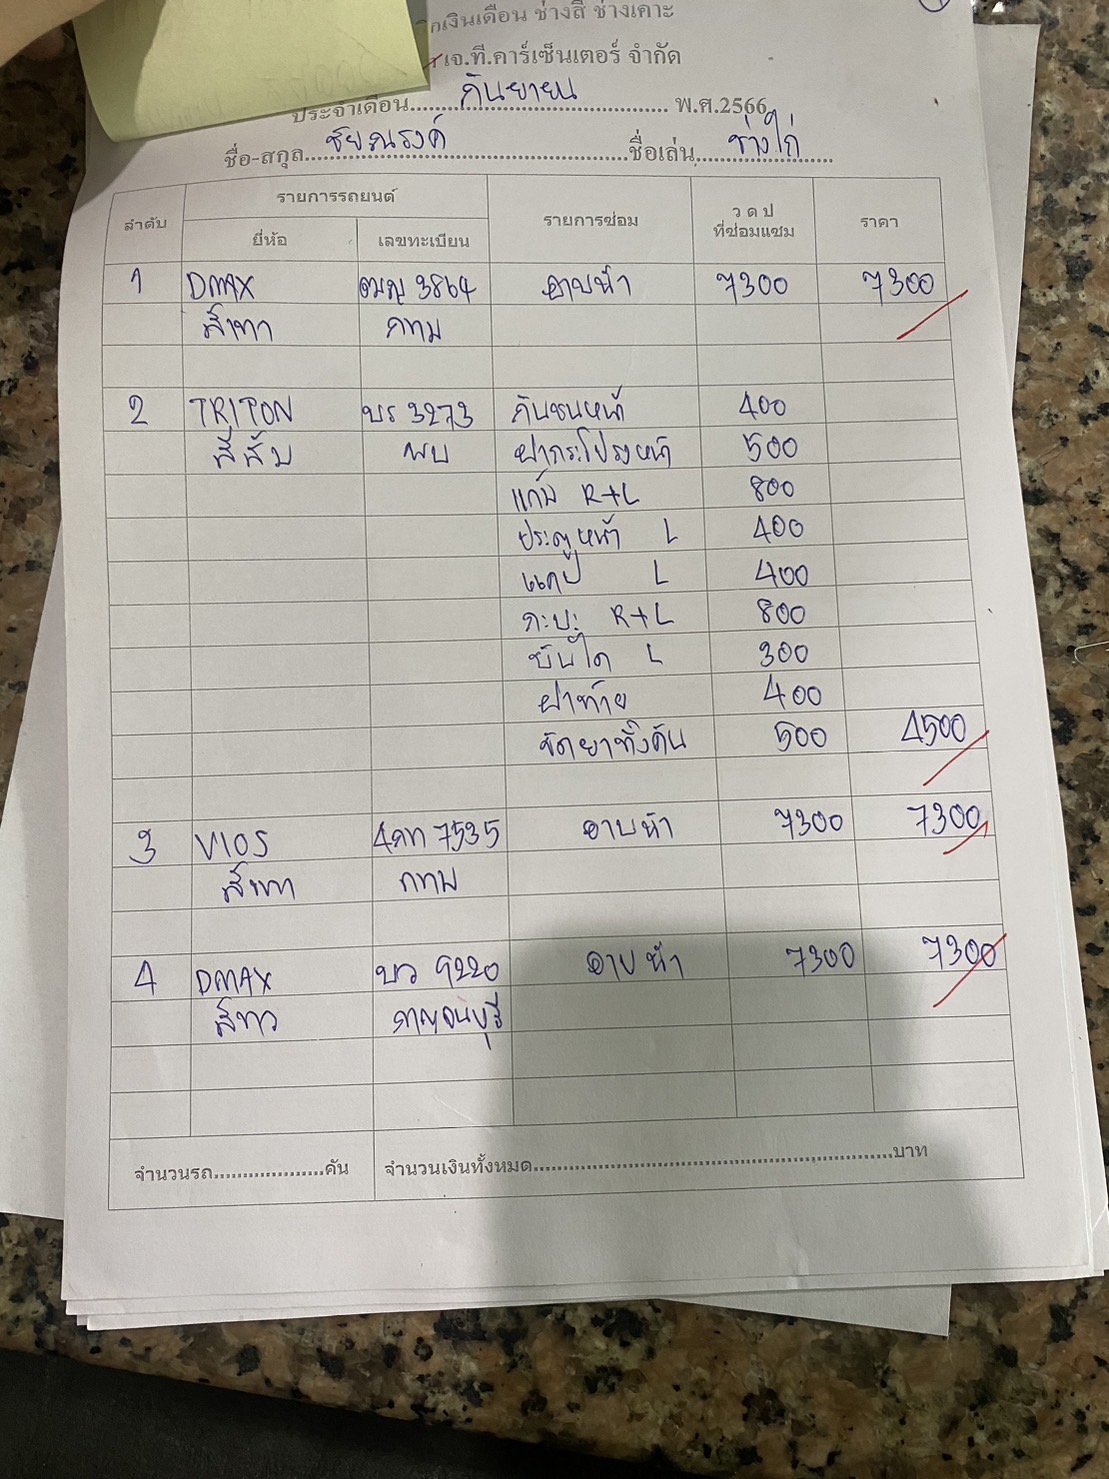 เงินเดือน ช่างสี ช่างเคาะ
เจ.ที.คาร์เซ็นเตอร์ จำกัด
ประจำเดือน กันยายน พ.ศ.2566
ชื่อ-สกุล ชัยณรงค์ ชื่อเล่น ช่างไก่
ลำดับ รายการรถยนต์ รายการซ่อม ว ด ป ที่ซ่อมแซม ราคา
ยี่ห้อ เลขทะเบียน
1 DMAX 3864 อาบน้ำ 7300 7300
สีเทา กทม
2 TRITON บร 3273 กันชนหน้า 400
สีส้ม พบ ฝากระโปรงหน้า 500
แก้ม R+L 800
ประตูหน้า L 400
แคป L 400
กะบะ R+L 800
บันได L 300
ฝาท้าย 400
ขัดยาทั้งคัน 500 4500
3 VIOS 4กท 7535 อาบน้ำ 7300 7300
สีเทา กทม
4 DMAX บว 9220 อาบน้ำ 7300 7300
สีขาว กาญจนบุรี
จำนวนรถ...................คัน จำนวนเงินทั้งหมด...................บาท